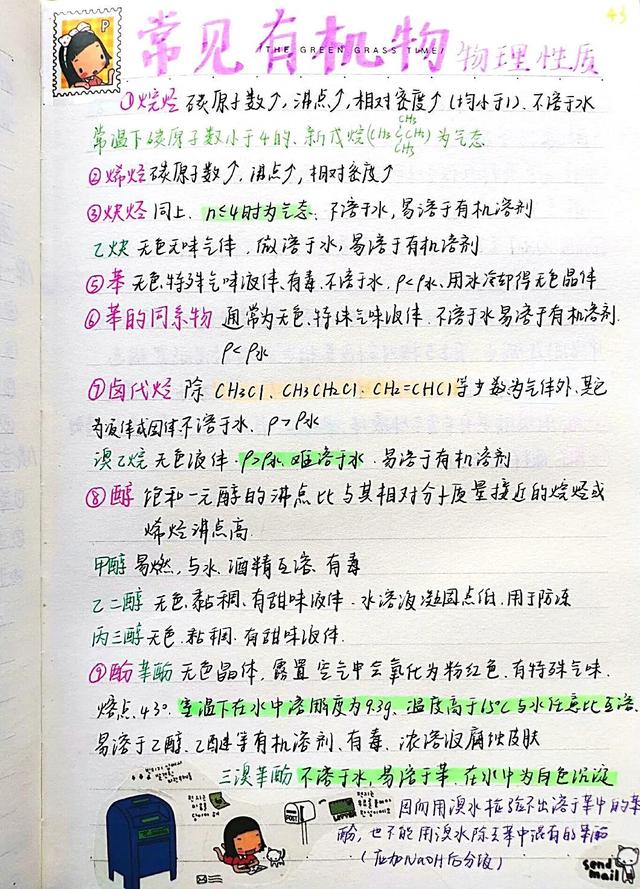 43
P
常见有机物 物理性质
THE GREEN GRASS TIME/
①烷烃 碳原子数↑,沸点↑,相对密度↑(均小于1).不溶于水
常温下碳原子数小于4的、新戊烷(CH3 C CH3)为气态
CH3
CH3
②烯烃 碳原子数↑,沸点↑,相对密度↑
③炔烃 同上. n≤4时为气态. 不溶于水,易溶于有机溶剂
乙炔 无色无味气体,微溶于水,易溶于有机溶剂
⑤苯 无色,特殊气味液体、有毒.不溶于水. ρ<ρ水、用冰冷却得无色晶体
⑥苯的同系物 通常为无色.特殊气味液体.不溶于水易溶于有机溶剂.
ρ<ρ水
⑦卤代烃 除 CH3Cl、CH3CH2Cl、CH2=CHCl等少数为气体外,其它
为液体或固体不溶于水. ρ>ρ水
溴乙烷 无色液体. ρ>ρ水 难溶于水.易溶于有机溶剂
⑧醇 饱和一元醇的沸点比与其相对分子质量接近的烷烃或
烯烃沸点高.
甲醇 易燃,与水、酒精互溶、有毒
乙二醇 无色.黏稠、有甜味液体.水溶液凝固点低.用于防冻
丙三醇 无色.黏稠.有甜味液体.
⑨酚 苯酚 无色晶体,露置空气中会氧化为粉红色.有特殊气味.
熔点43°.室温下在水中溶解度为9.3g、温度高于℃与水任意比互溶.
易溶于乙醇、乙醚等有机溶剂、有毒、浓溶液腐蚀皮肤
三溴苯酚 不溶于水,易溶于苯.在水中为白色沉淀
因而用溴水检验不出溶于苯中的苯
酚,也不能用溴水除去苯中混有的苯酚
(应加NaOH后分液)
LETTER
send
mail